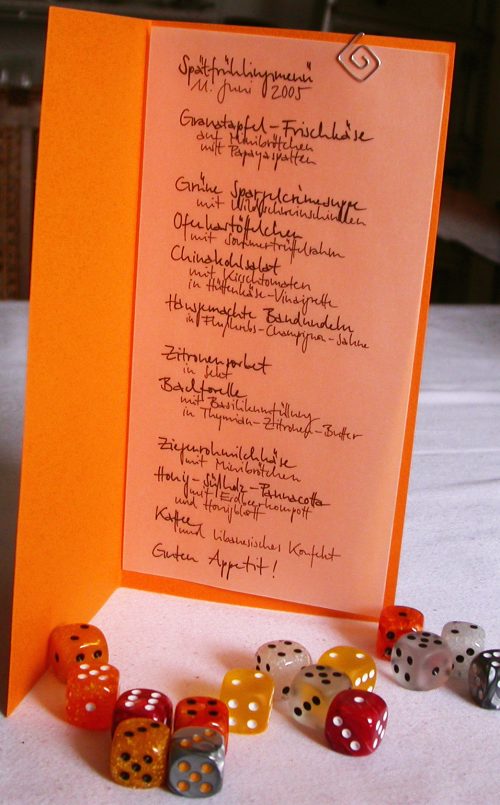 Spätfrühlingsmenü
11. Juni 2005
Granatapfel-Frischkäse
auf Minibrötchen
mit Papayaspalten
Grüne Spargelcrèmesuppe
mit Wildschweinschinken
Ofenkartöffelchen
mit Sommertrüffelrahm
Chinakohlsalat
mit Kirschtomaten
in Hüttenkäse-Vinaigrette
Hausgemachte Bandnudeln
in -Champignon-Sahne
Zitronensorbet
in Sekt
Bachforelle
mit Basilikumfüllung
in Thymian-Zitronen-Butter
Ziegenrohmilchkäse
mit Minibrötchen
Honig-Süßholz-Pannacotta
mit Erdbeerkompott
und Honigblatt
Kaffee
und libanesisches Konfekt
Guten Appetit!